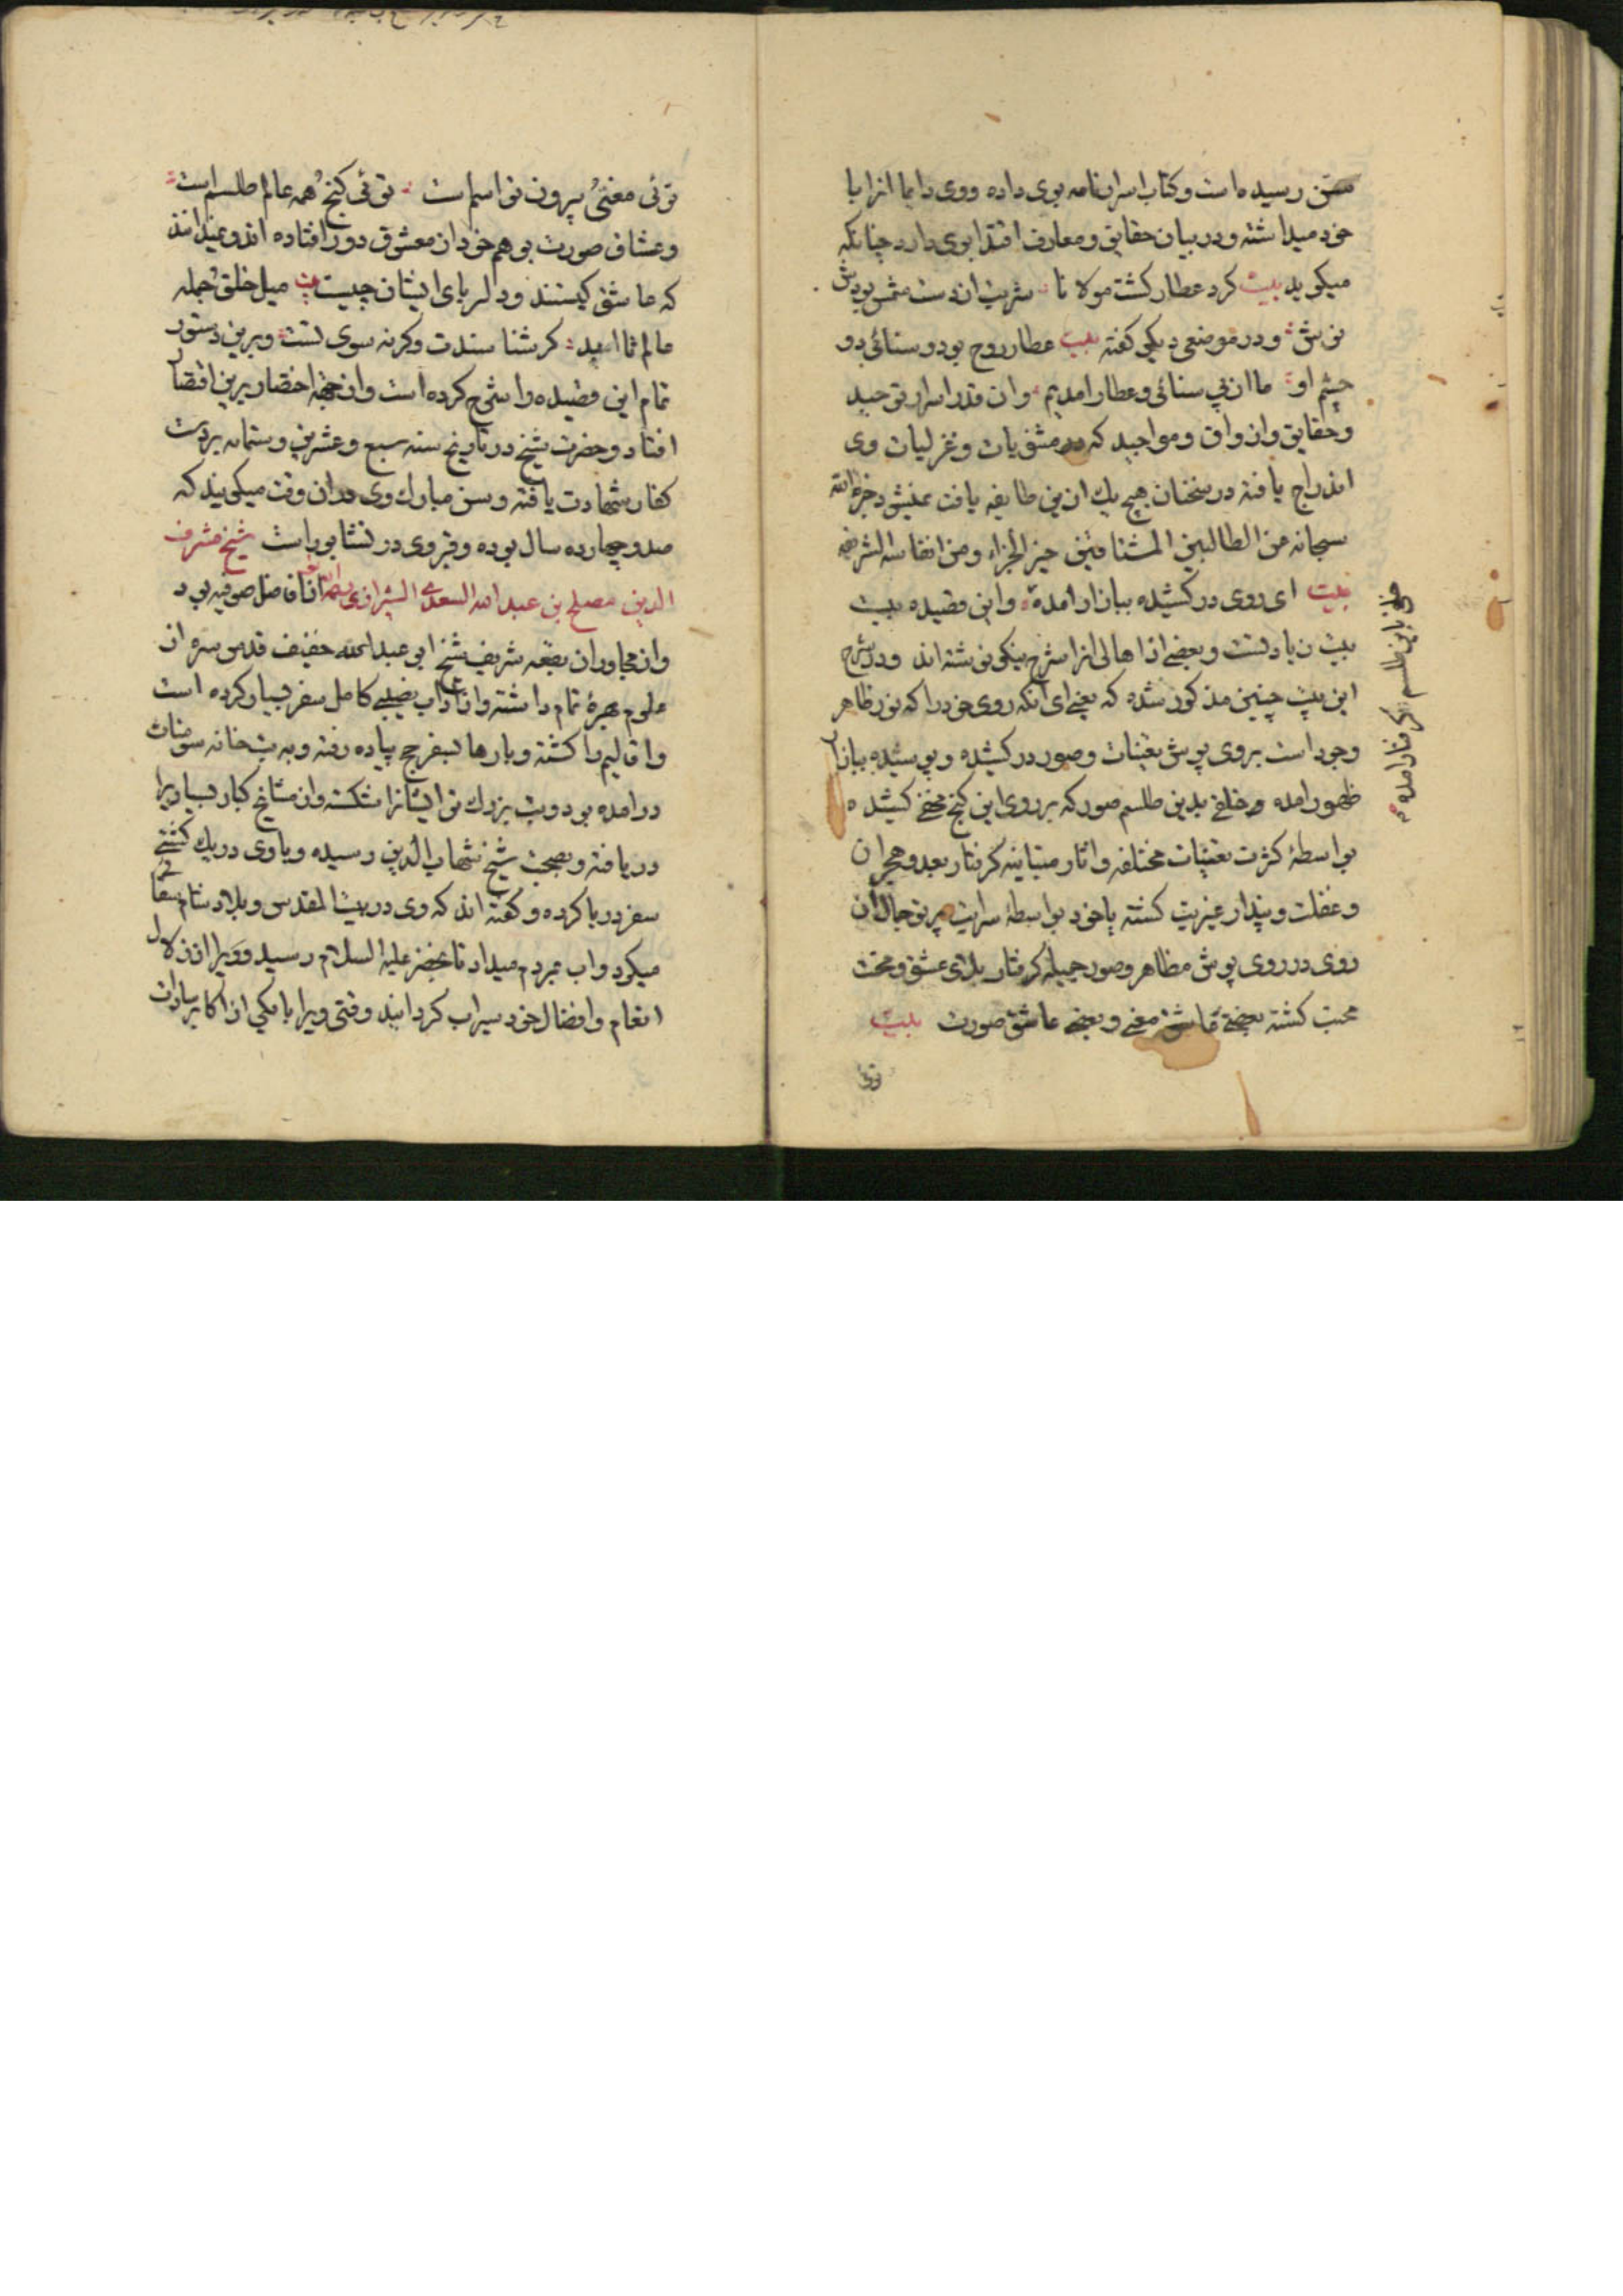 سن رسیده است و کتاب اسرارنامه بوی داده و وی دایما انرا با
خود میداشته و در بیان حقایق و معارف اقتدا بوی دارد چنانکه
میکوید بیت کرد عطار کشت مولانا شربت از دست شمس بودش
نوش و در موضعی دیکر کفته بیت عطار روح بود و سنائی دو
چشم او ما از پی سنائی و عطار امدیم و ان قدر اسرار توحید
و حقایق و اذواق و مواجید که در مثنویات و غزلیات وی
اندراج یافته در سخنان هیچ یک ازین طایفه یافت نمیشود جزاه الله
سبحانه عن الطالبین المشتاقین خیر الجزاء و من انفاسه الشریفه
بیت ای روی در کشیده ببازار امده و این قصیده بیست
بیت زیادتست و بعضی از اهالی انرا شرح نیکو نوشته اند و در شرح
این بیت چنین مذکور شده که یعنی ای انکه روی خود را که نور ظاهر
وجود است بروی پوش تعینات و صور در کشیده و پوشیده ببازار
ظهور امده و خلقی بدین طلسم صور که بر روی این کنج مخفی کشیده
بواسطۀ کثرت تعینات مختلفه و اثار متباینه کرفتار بعد و هجران
و غفلت و پندار غیریت کشته یا خود بواسطۀ سرایت پرتو جمال ان
روی در روی پوش مظاهر و صور جمیله کرفتار بلای عشق و محنت
محبت کشته بعضی عاشق معنی و بعضی عاشق صورت بیت
توئی
خلقی باین طلسم کرفتار امده
توئی معنی و بیرون تو اسم است توئی کنج و همه عالم طلسم است
و عشاق صورت بوهم خود از معشوق دور افتاده اند و نمیدانند
که عاشق کیستند و دلربای ایشان چیست بیت میل خلق جمله
عالم تا ابد کر شناسندت و کرنه سوی تست و برین دستور
تمام این قصیده را شرح کرده است و از جهة اختصار برین اقتصار
افتاد و حضرت شیخ در تاریخ سنه سبع و عشرین و ستمایه بر دست
کفار شهادت یافته و سن مبارک وی در ان وقت میکویند که
صد و چهارده سال بوده و قبر وی در نشابور است شیخ مشرف
الدین مصلح بن عبدالله السعدی الشیرازی رحمه الله از افاضل صوفیه بود
و از مجاوران بقعه شریف شیخ ابی عبدالله خفیف قدس سره از
علوم بهرۀ تمام داشته و از اداب نصیبی کامل سفر بسیار کرده است
و اقالیم را کشته و بارها بسفر حج پیاده رفته و به بتخانه سومنات
درامده بود و بت بزرک تر ایشانرا شکسته و از مشایخ کبار بسیاریرا
دریافته و بصحبت شیخ شهاب الدین رسیده و با وی در یک کشتی
سفر دریا کرده و کفته اند که وی در بیت المقدس و بلاد شام سقائی
میکرد و اب بمردم میداد تا بخضر علیه السلام رسید و ویرا از زلال
انعام و افضال خود سیراب کردانید وقتی ویرا با یکی از اکابر سادات